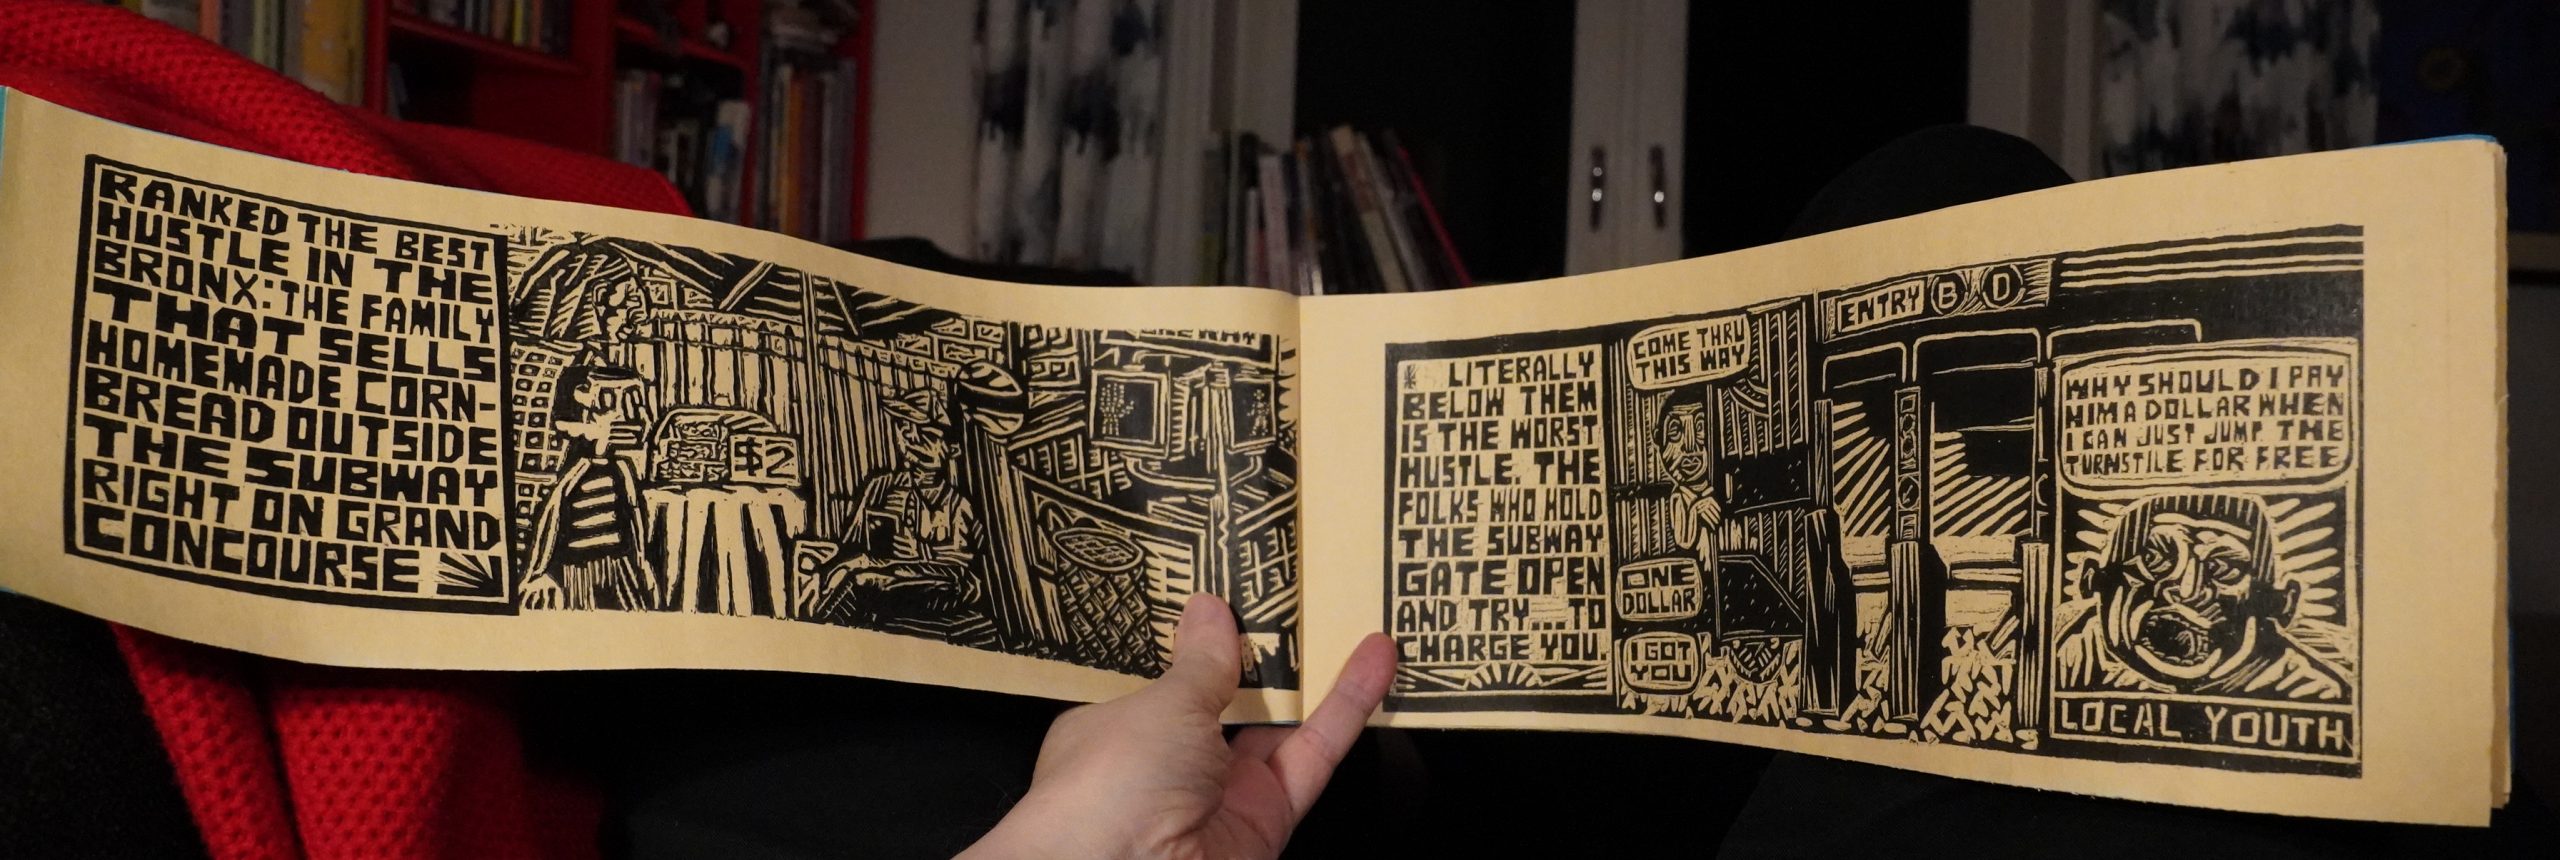 RANKED THE BEST
HUSTLE IN THE
BRONX: THE FAMILY
THAT SELLS
HOMEMADE CORN-
BREAD OUTSIDE
THE SUBWAY
RIGHT ON GRAND
CONCOURSE
$2
LITERALLY
BELOW THEM
IS THE WORST
HUSTLE. THE
FOLKS WHO HOLD
THE SUBWAY
GATE OPEN
AND TRY...TO
CHARGE YOU.
COME THRU
THIS WAY
ONE
DOLLAR
I GOT
YOU
ENTRY B D
WHY SHOULD I PAY
HIM A DOLLAR WHEN
I CAN JUST JUMP THE
TURNSTILE FOR FREE
LOCAL YOUTH